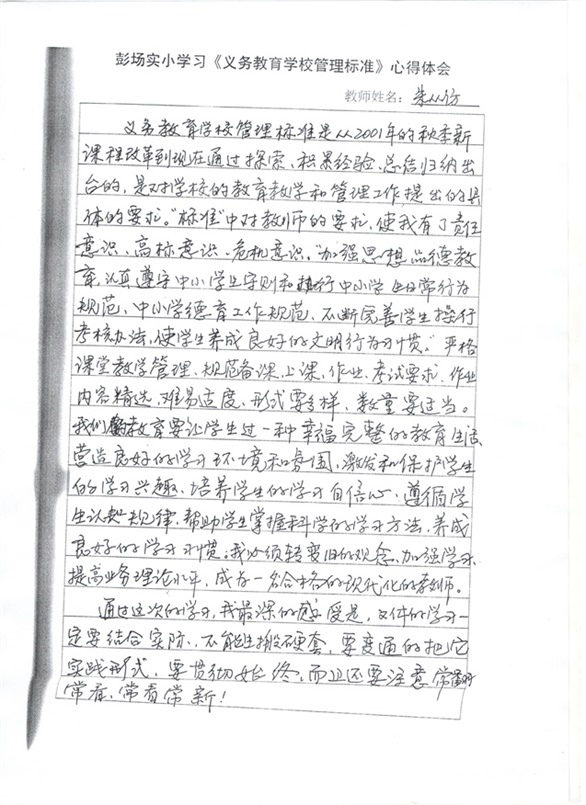 彭场实小学习《义务教育学校管理标准》心得体会
教师姓名：朱从防
义务教育学校管理标准是从2001年的秋季新
课程改革到现在通过探索、积累经验、总结归纳出
台的，是对学校的教育教学和管理工作提出的具
体的要求。“标准”中对教师的要求，使我有了责任
意识、高标意识、危机意识。“加强思想品德教
育，认真遵守中小学生守则和执行中小学生日常行为
规范，中小学德育工作规范，不断完善学生操行
考核办法，使学生养成良好的文明行为习惯。”严格
课堂教学管理，规范备课、上课、作业、考试要求，作业
内容精选，难易适度，形式要多样，数量要适当。
我们教育要让学生过一种幸福完整的教育生活
营造良好的学习环境和氛围，激发和保护学生
的学习兴趣，培养学生的学习自信心，遵循学
生认知规律，帮助学生掌握科学的学习方法，养成
良好的学习习惯。我必须转变旧的观念，加强学习，
提高业务理论水平，成为一名合格的现代化的教师。
通过这次的学习，我最深的感受是，文体的学习一
定要结合实际，不能生搬硬套，要变通的把它
实践形式，要贯彻始终，而且还要注意常翻
常看，常看常新！